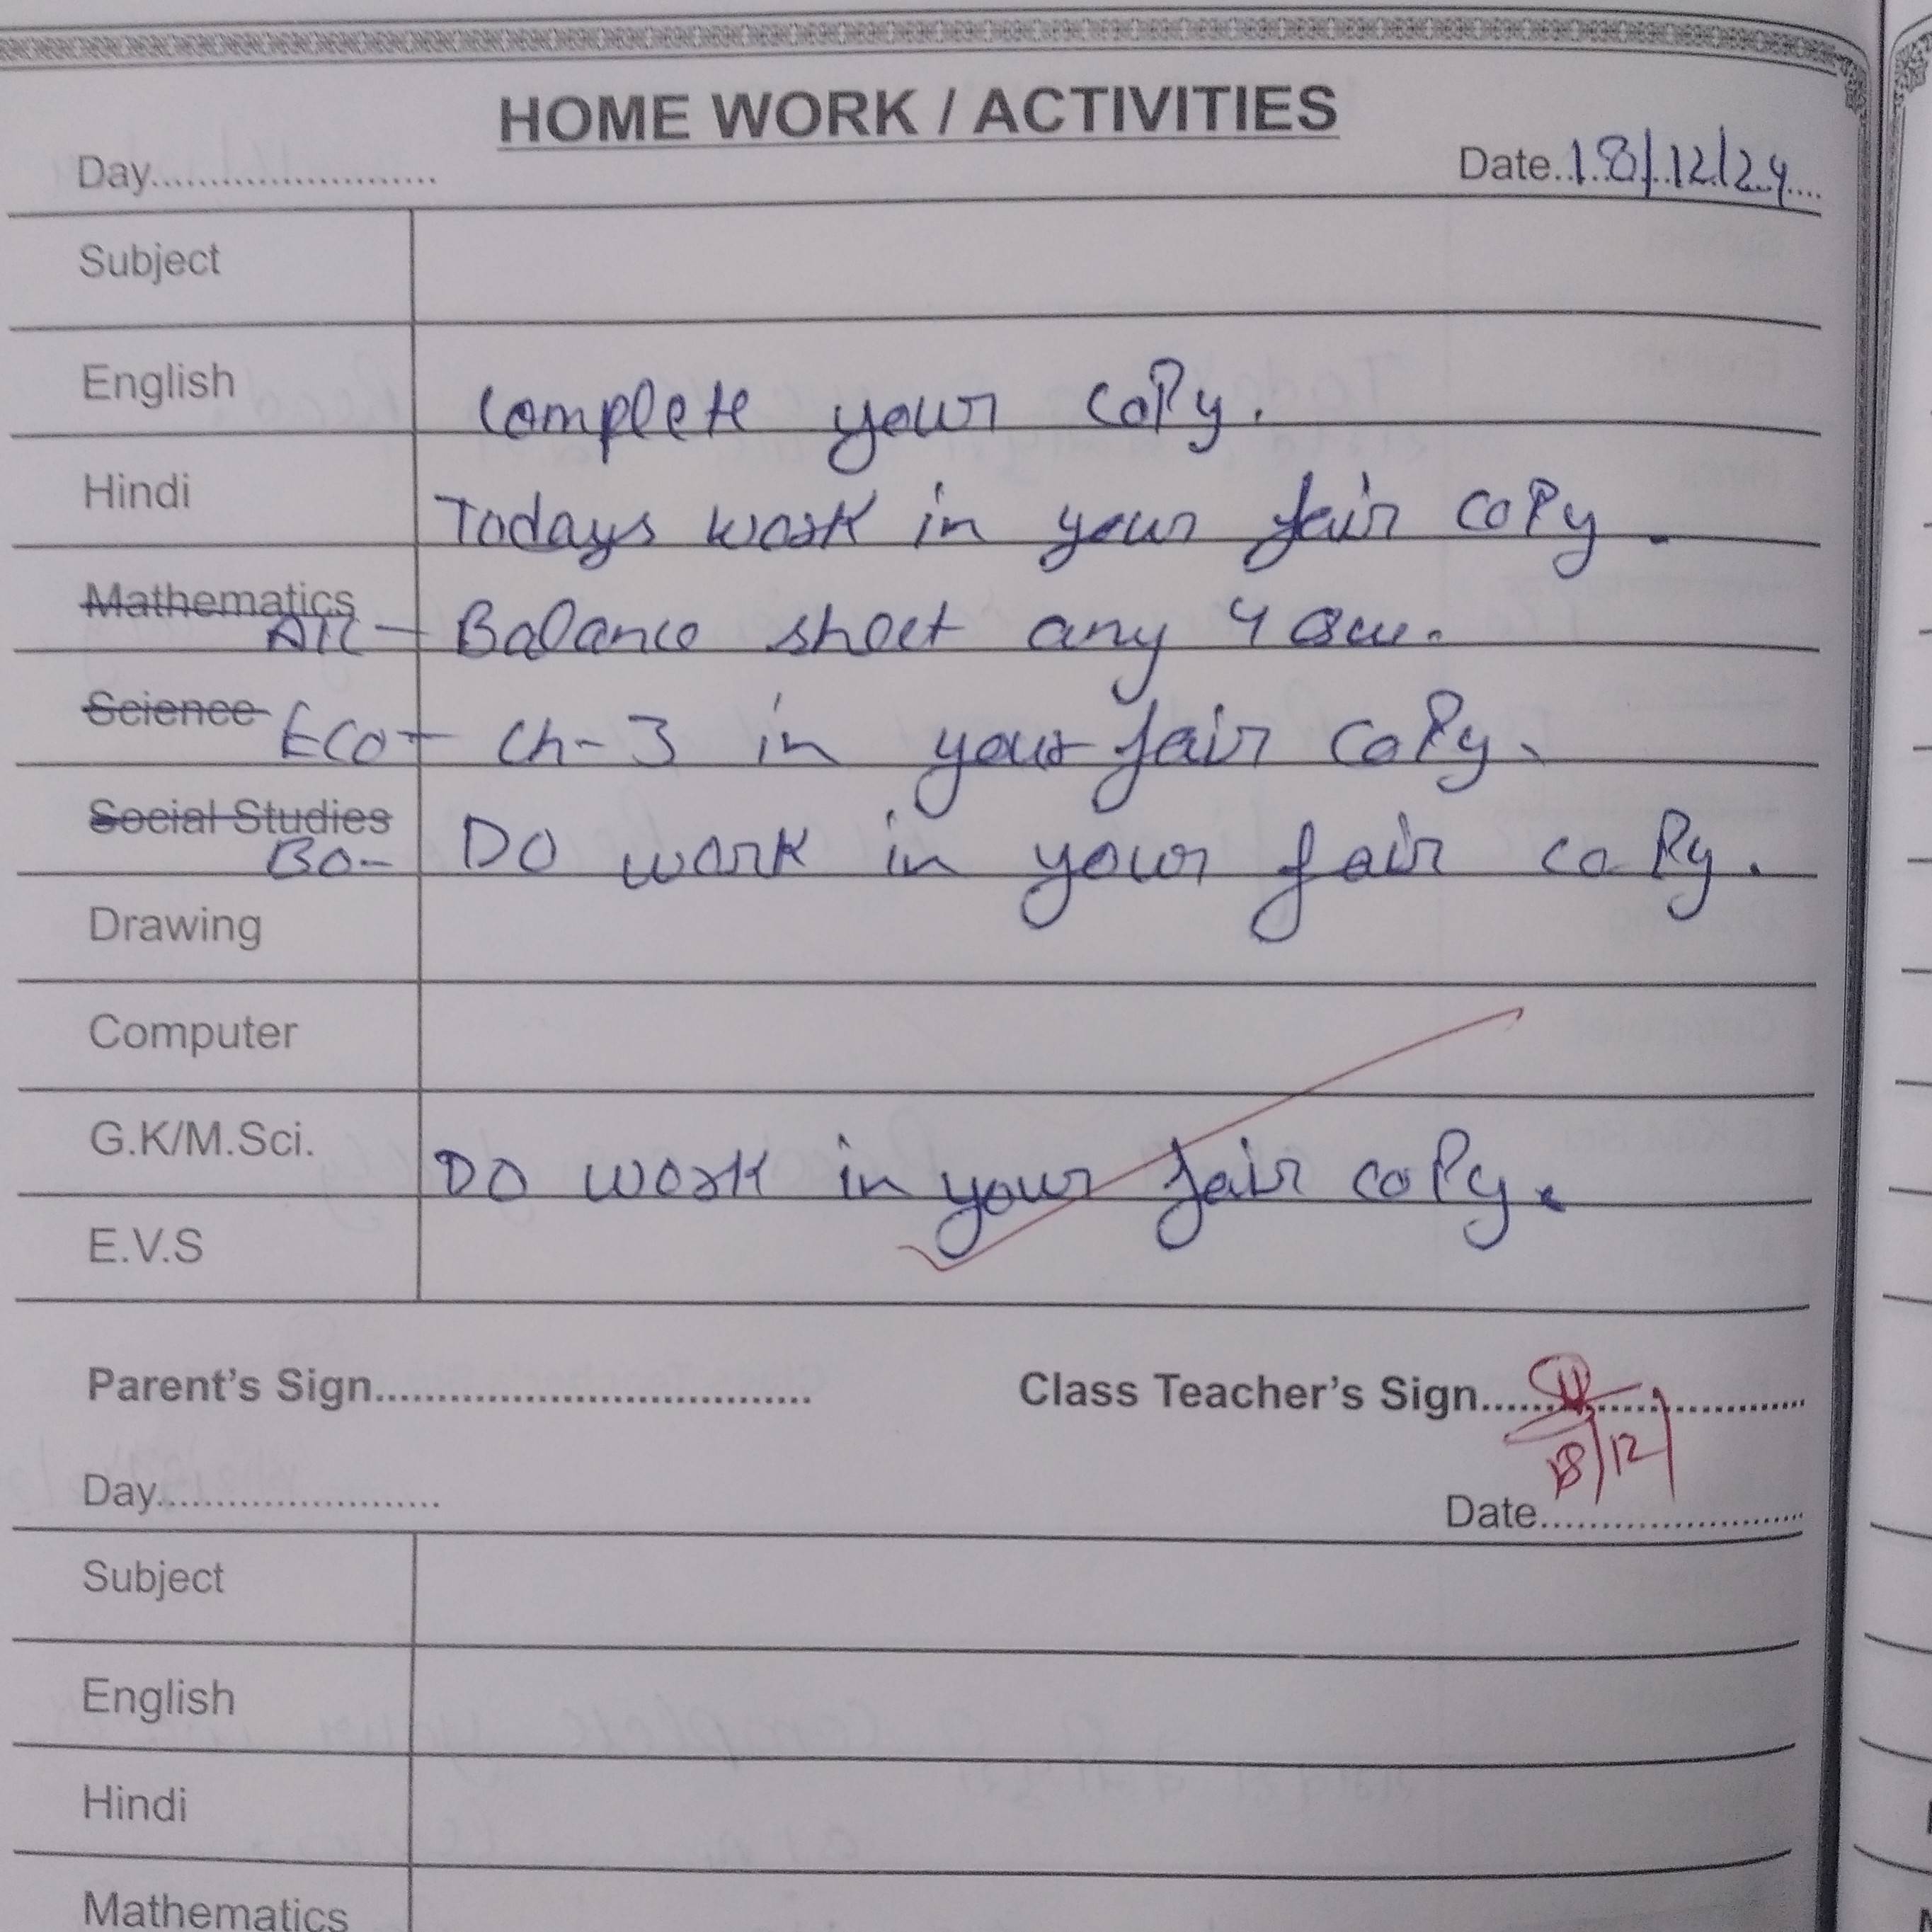 HOME WORK / ACTIVITIES
Day........................ Date..18/12/24....
Subject
English Complete your coPy.
Hindi Todays work in your fair coPy.
Mathematics
Balance sheet any 4 Que.
Science Eco - Ch-3 in your fair coPy.
Social Studies
BO- DO work in your fair coPy.
Drawing
Computer
G.K/M.Sci. DO work in your fair coPy.
E.V.S
Parent's Sign.................................... Class Teacher's Sign...........................
18/12
Day........................ Date........................
Subject
English
Hindi
Mathematics